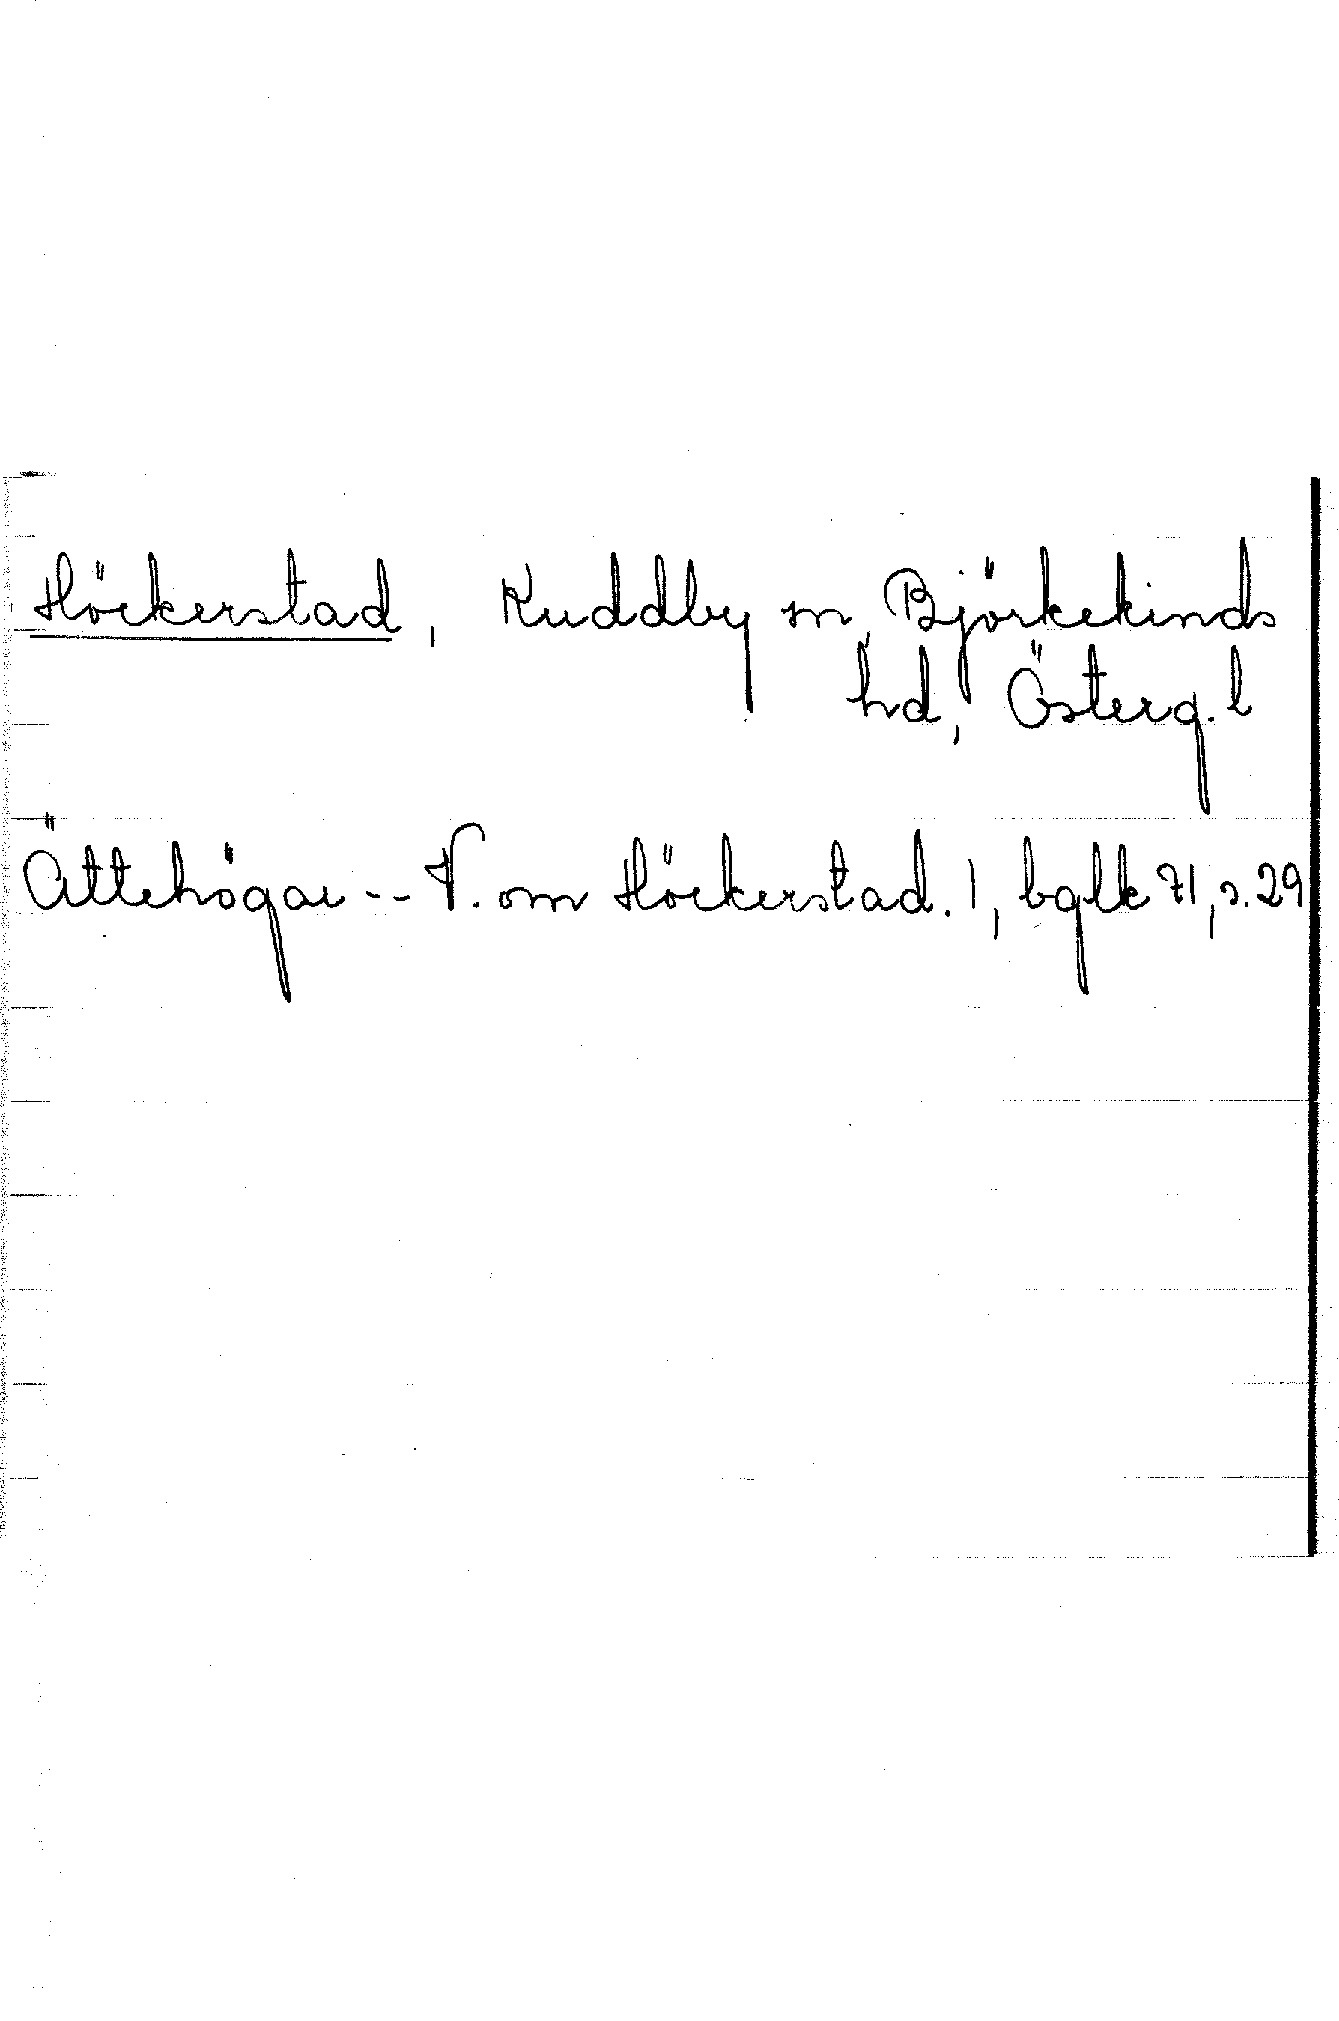 Höckerstad, Kuddby sn, Björkekinds
hd, Österg. l
Ättehögar -- V. om Höckerstad. 1, bglk 71, s. 29